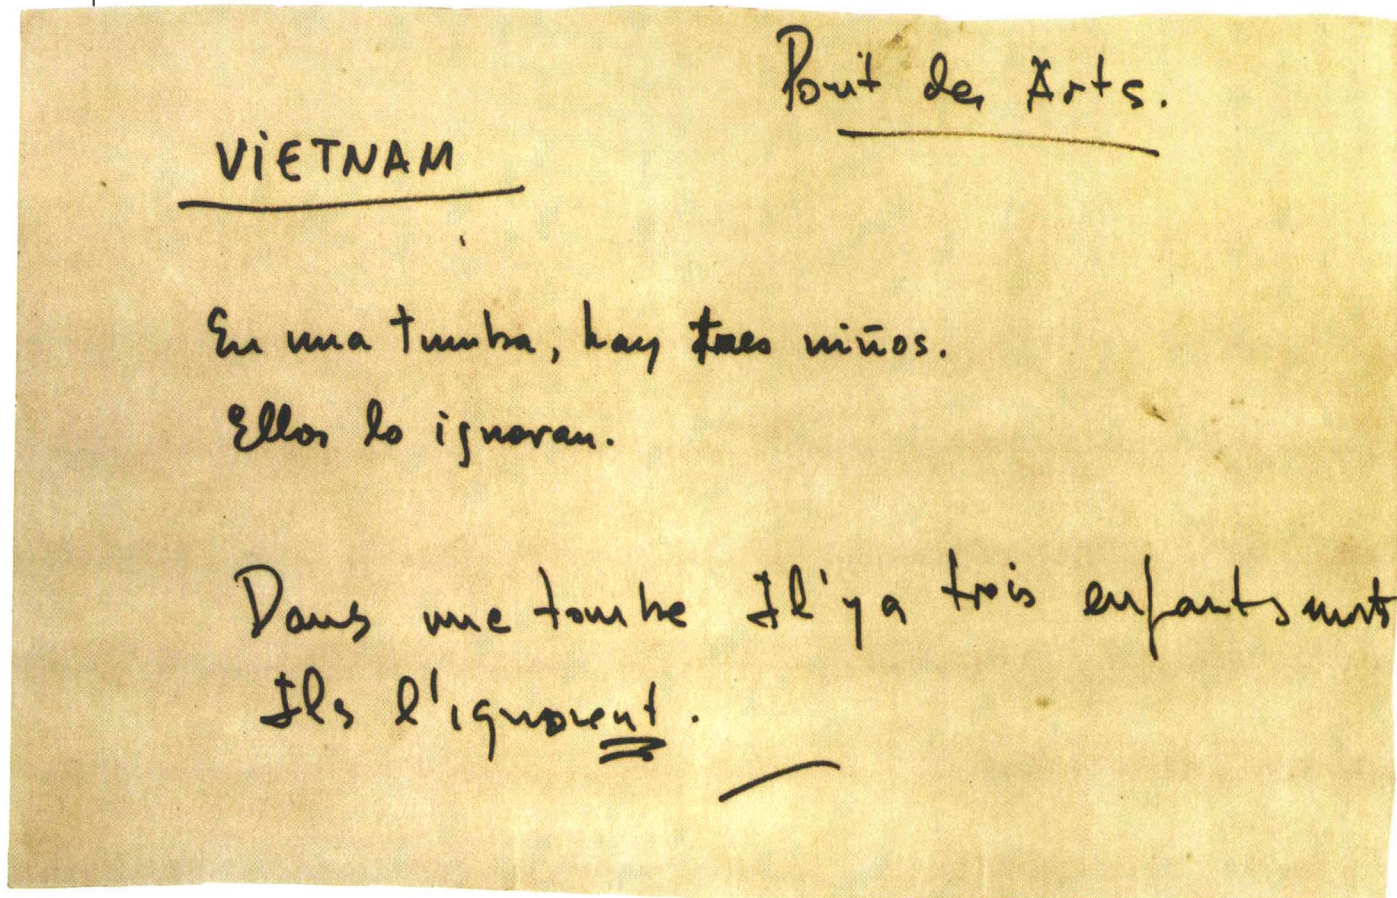 Pont des Arts.
VIETNAM
En una tumba, hay tres niños.
Ellos lo ignoran.
Dans une tombe Il'y a trois enfants morts
Ils l'ignorent.